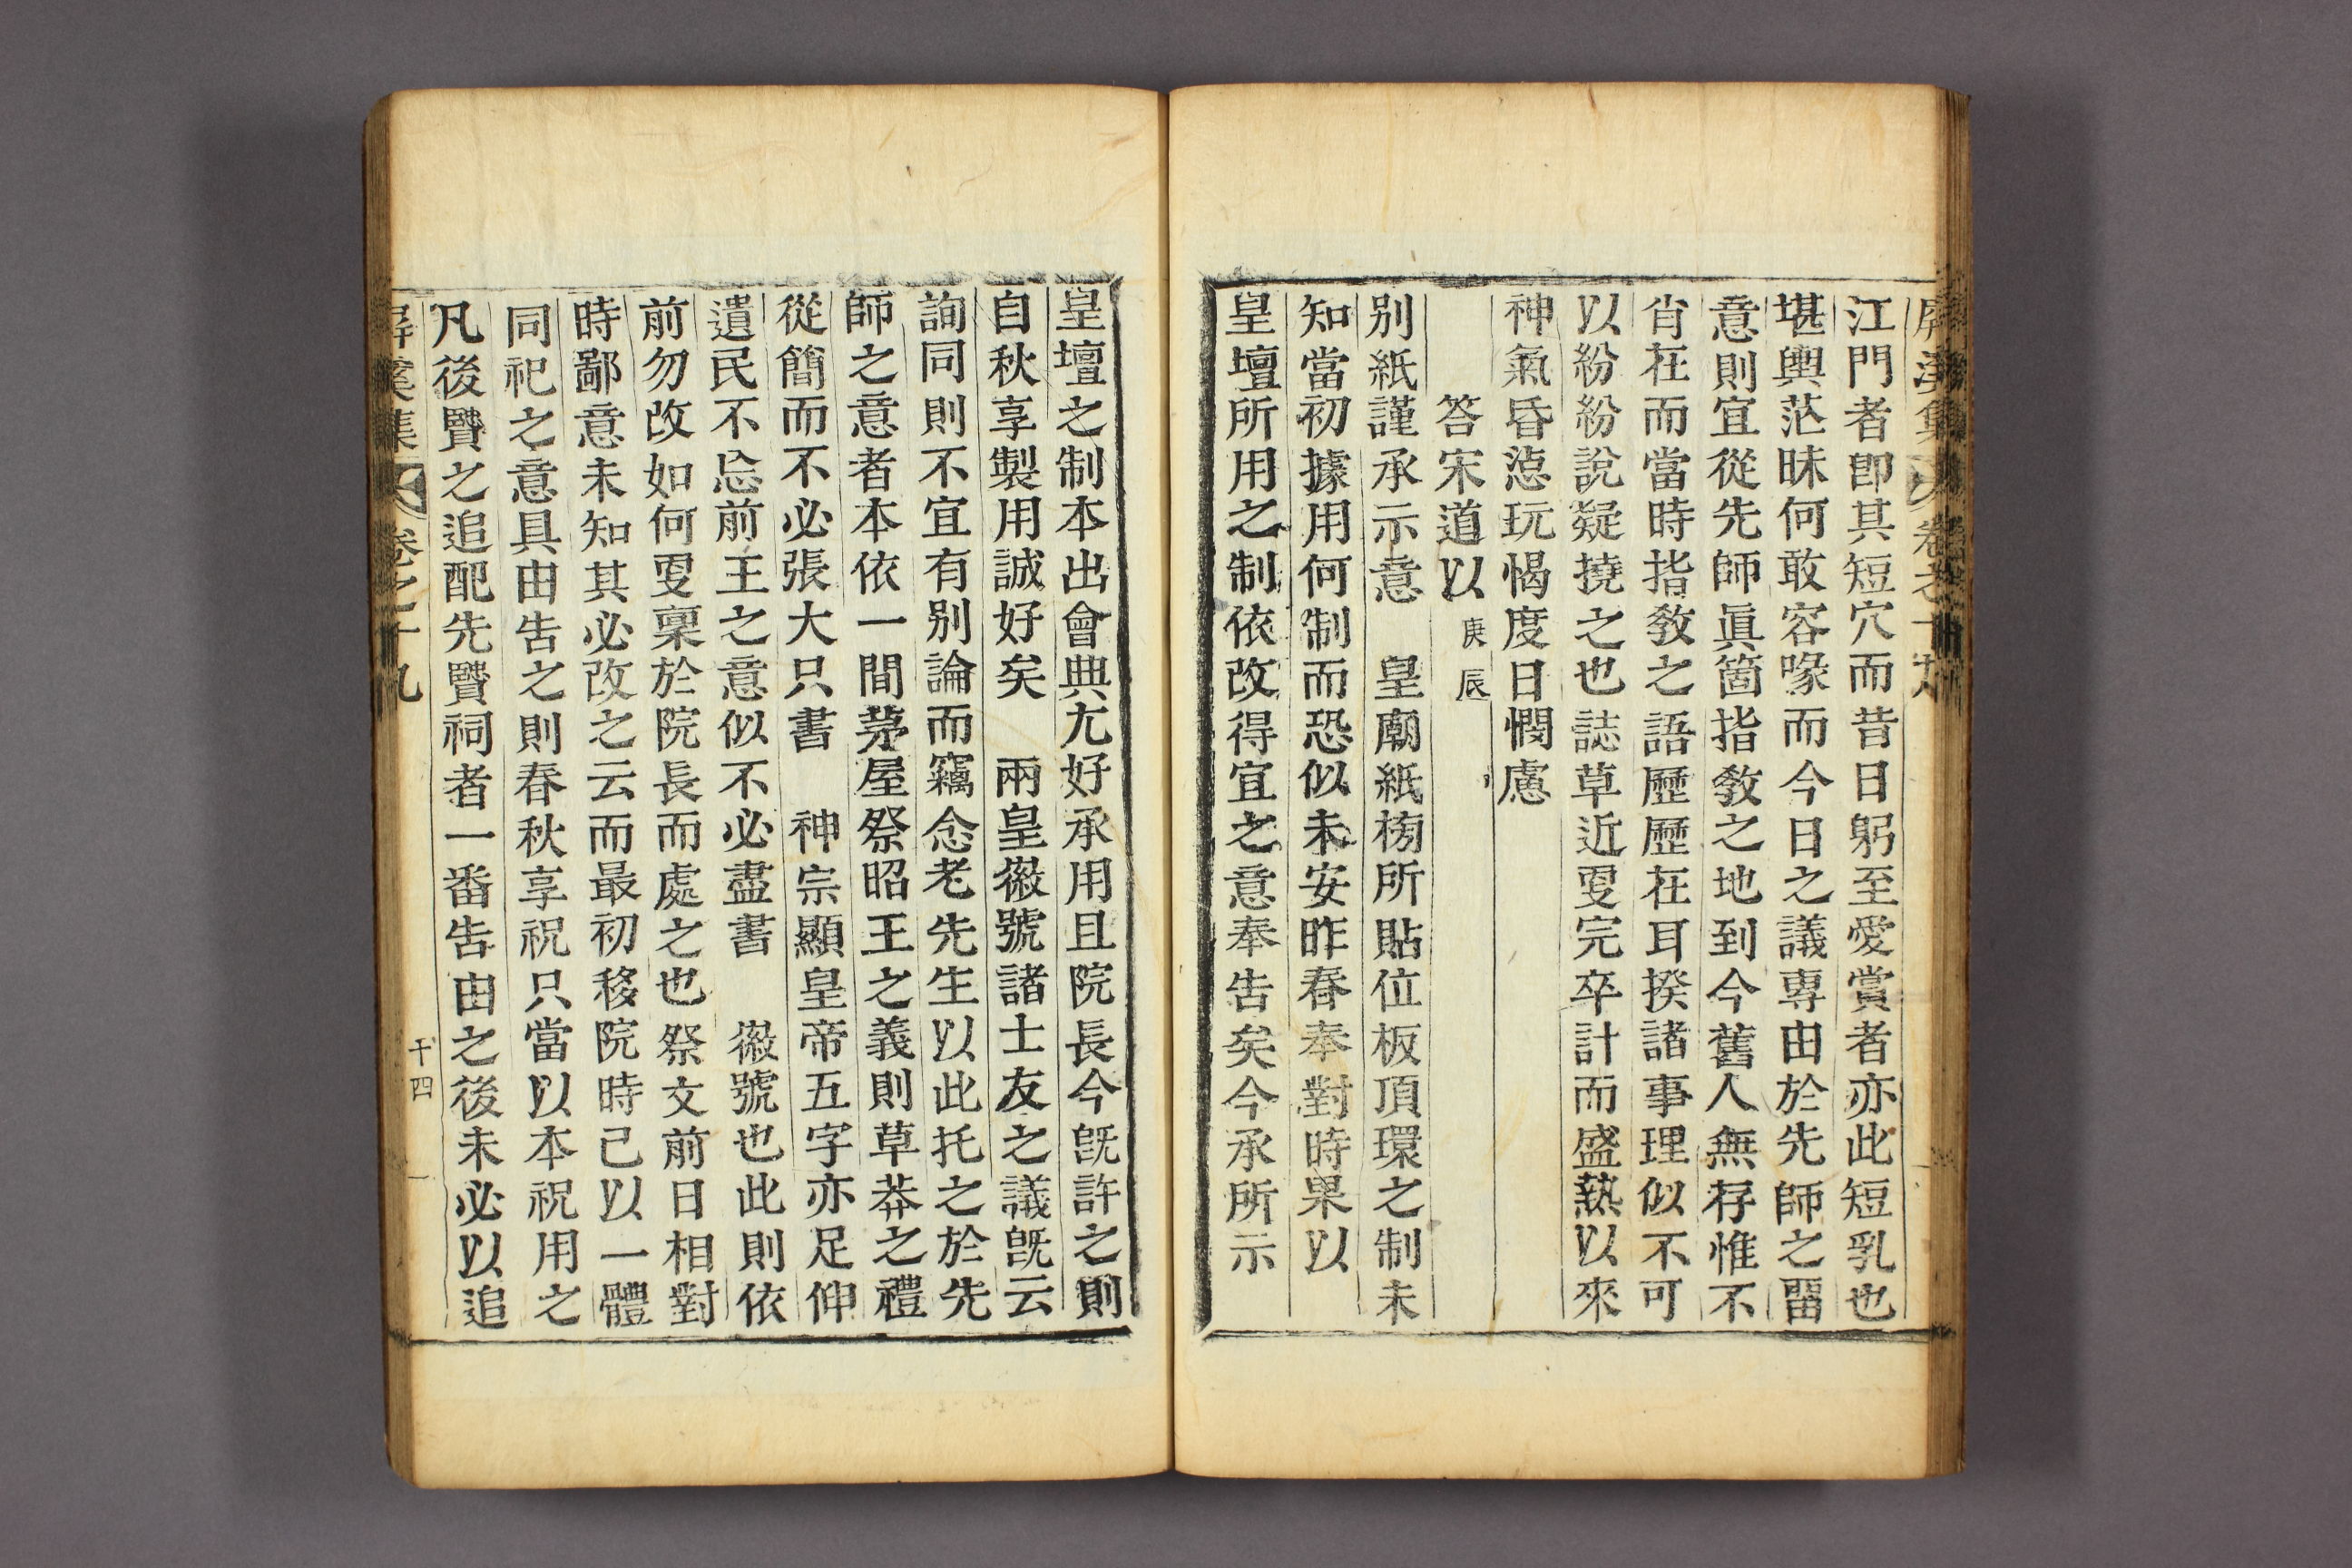 屛溪集 卷之十九
江門者卽其短穴而昔日躬至愛賞者亦此短乳也
堪輿茫昧何敢容喙而今日之議專由於先師之畱
意則宜從先師眞箇指敎之地到今舊人無存惟不
肖在而當時指敎之語歷歷在耳揆諸事理似不可
以紛紛說疑撓之也誌草近叓完卒計而盛熱以來
神氣昏涽玩愒度日憫慮
答宋道以 庚辰
別紙謹承示意 皇廟紙牓所貼位板頂環之制未
知當初據用何制而恐似未安昨春奉對時果以
皇壇所用之制依改得宜之意奉告矣今承所示
皇壇之制本出會典尤好承用且院長今旣許之則
自秋享製用誠好矣 兩皇徽號諸士友之議旣云
詢同則不宜有別論而竊念老先生以此托之於先
師之意者本依一間茅屋祭昭王之義則草莽之禮
從簡而不必張大只書 神宗顯皇帝五字亦足伸
遺民不忘前王之意似不必盡書 徽號也此則依
前勿改如何叓稟於院長而處之也祭文前日相對
時鄙意未知其必改之云而最初移院時已以一體
同祀之意具由告之則春秋享祝只當以本祝用之
凡後賢之追配先賢祠者一番告由之後未必以追
屛溪集 卷之十九 十四